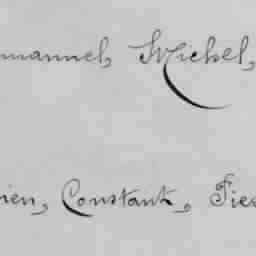 mmanuel, Michel,
ien, Constant, Fie